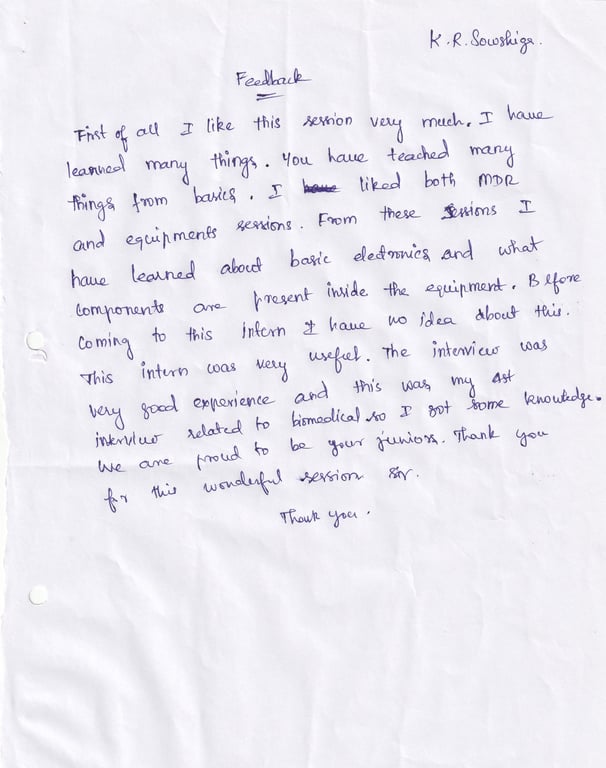 K.R.Sowshiga.
Feedback
First of all I like this session very much. I have
learned many things. You have teached many
things from basics. I have liked both MDR
and equipments sessions. From these sessions I
have learned about basic electronics and what
components are present inside the equipment. Before
coming to this intern I have no idea about this.
This intern was very useful. The interview was
very good experience and this was my 1st
interview related to biomedical so I got some knowledge.
We are proud to be your juniors. Thank you
for this wonderful session sir.
Thank you.